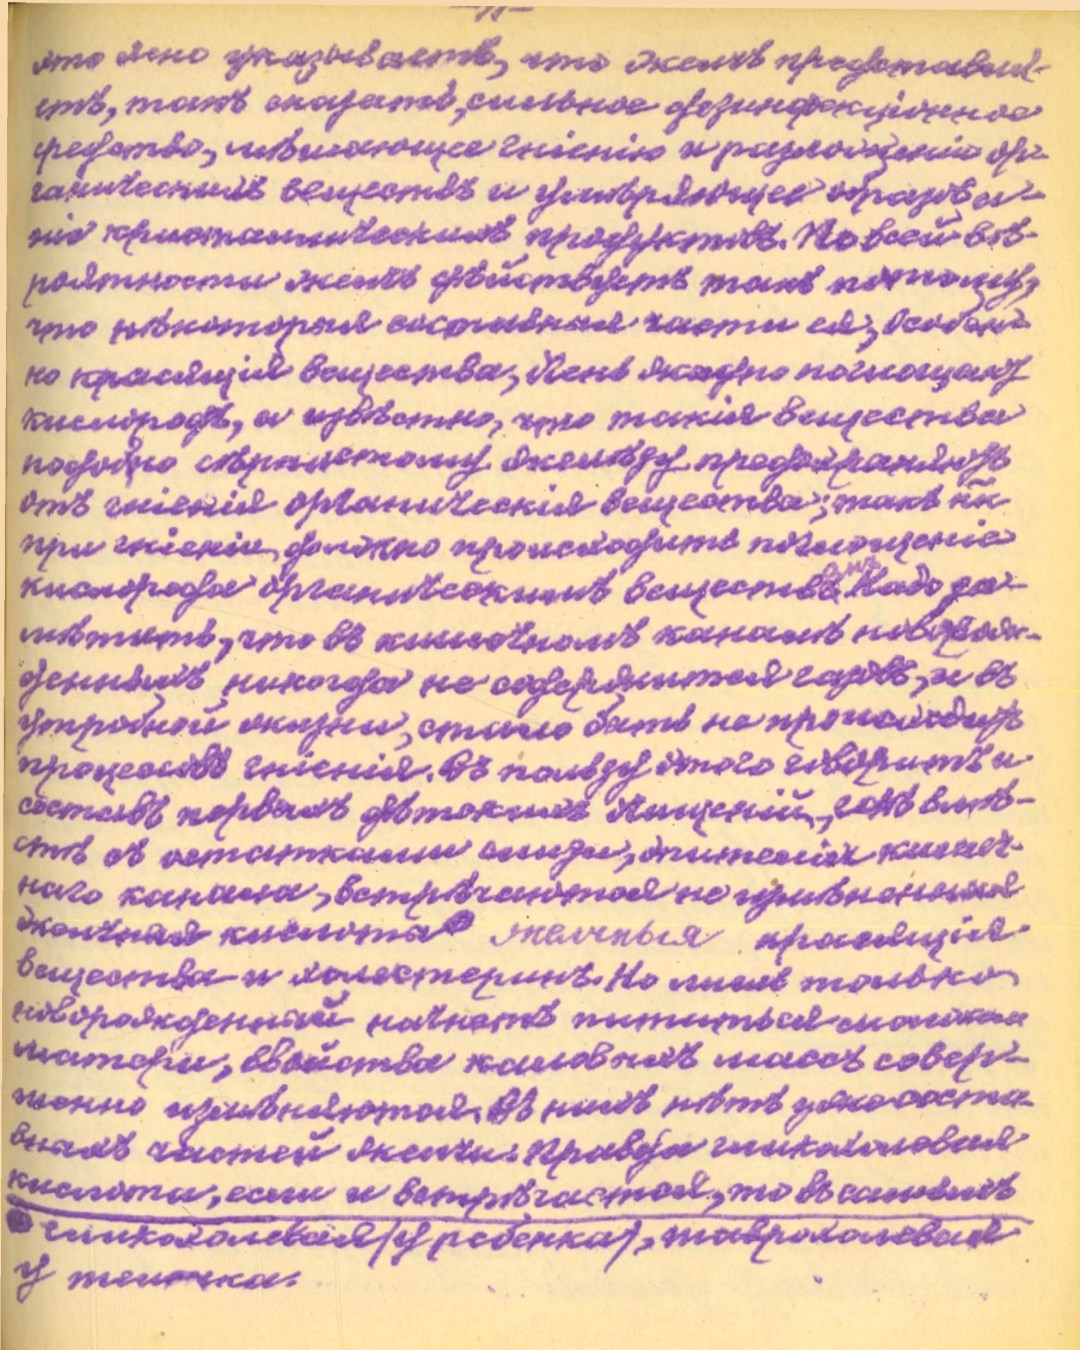 что ясно указываетъ, что желчь представля-
етъ, такъ сказать, сильное дезинфекціонное
средство, мѣшающее гніенію и разложенію ор-
ганическихъ веществъ и умѣряющее образова-
ніе кристаллическихъ продуктовъ. По всей вѣ-
роятности желчь дѣйствуетъ такъ потому,
что нѣкоторыя составныя части ея, особен-
но красящія вещества, очень жадно поглощаютъ
кислородъ, а извѣстно, что такія вещества
подобно сѣрнистому желѣзу предохраняютъ
отъ гніенія органическія вещества; такъ кк
при гніеніи должно происходить поглощеніе
кислорода органическимъ веществомъ. Надо за-
мѣтить, что въ кишечномъ каналѣ новорож-
денныхъ никогда не содержится газовъ, и въ
утробной жизни, стало быть не происходитъ
процессовъ гніенія. Въ пользу этого говоритъ и
составъ первыхъ дѣтскихъ , гдѣ вмѣ-
стѣ съ остатками слизи, эпителія кишеч-
наго канала, встрѣчаются не измѣненныя
желчныя кислоты желчныя красящія
вещества и холестеринъ. Но лишь только
новорожденный начнетъ питаться молокомъ
матери, свойства каловыхъ массъ совер-
шенно измѣняются. Въ нихъ нѣтъ уже соста-
вныхъ частей желчи. Правда гликохолевая
кислота, если и встрѣчается, то въ самыхъ
гликохолевая (у ребенка), таврохолевая
у теленка.